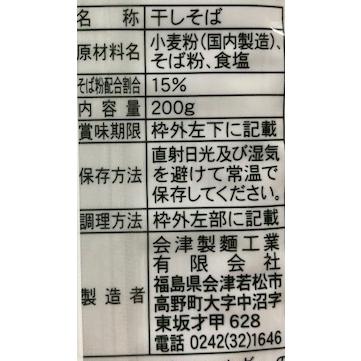 名称 干しそば
原材料名 小麦粉(国内製造)、
そば粉、食塩
そば粉配合割合 15%
内容量 200g
賞味期限 枠外左下に記載
保存方法 直射日光及び湿気
を避けて常温で
保存してください。
調理方法 枠外左部に記載
製造者 会津製麺工業
有限会社
福島県会津若松市
高野町大字中沼字
東坂才甲628
電話 0242(32)1646